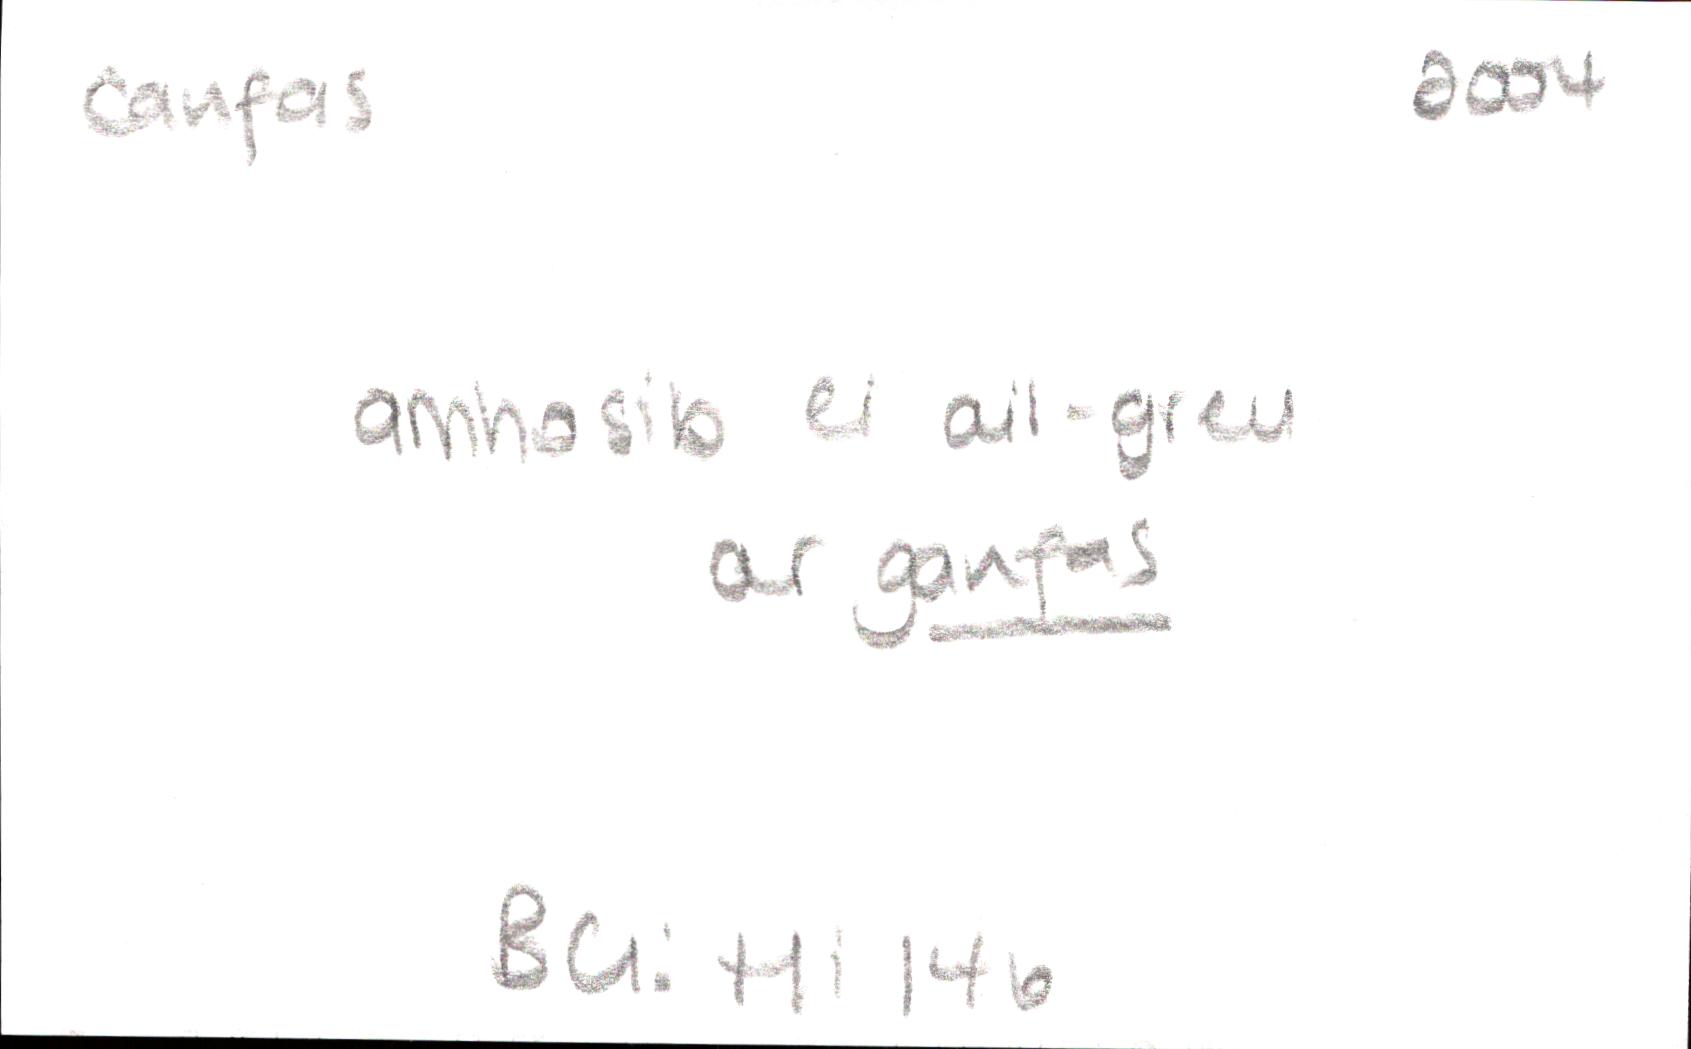 canfas 2004
amhosib ei ail-greu
ar ganfas
BCl: Hi 146